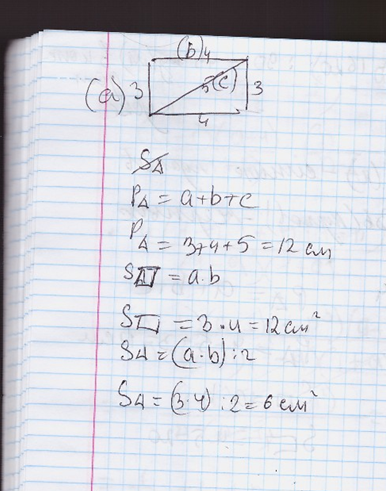 (b) 4
(a) 3 5 (c) 3
4
S△
P△ = a+b+c
P△ = 3+4+5 = 12 см
S▭ = a·b
S▭ = 3·4 = 12 см²
S△ = (a·b):2
S△ = (3·4):2 = 6 см²